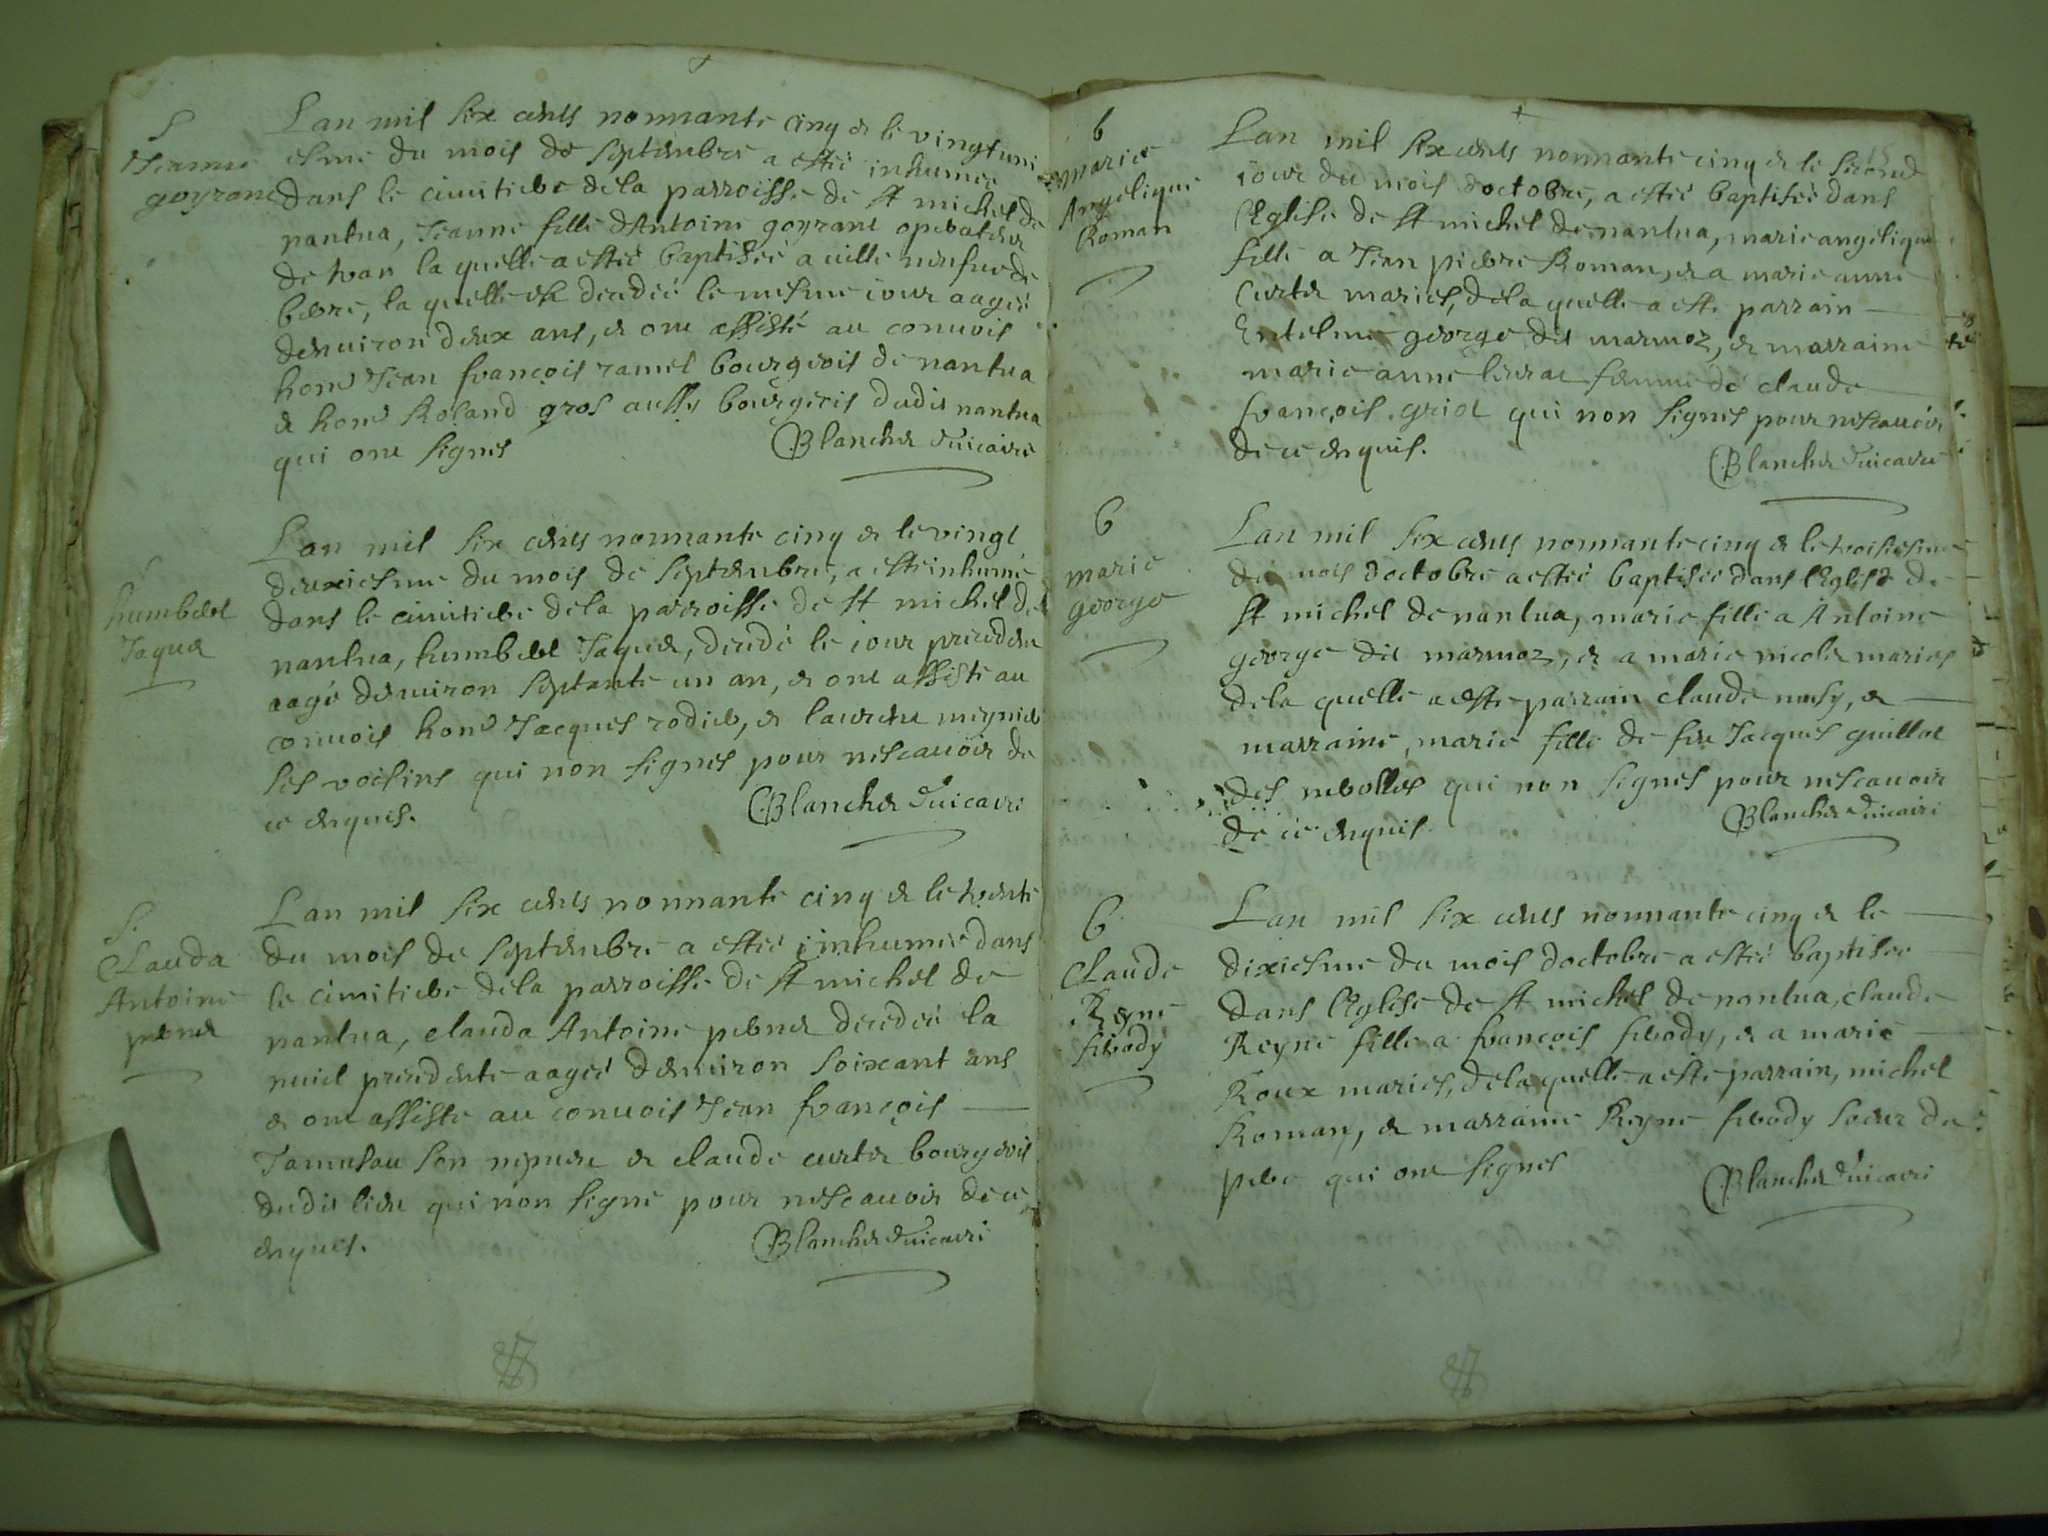 S
Jeanne
goyrane
Lan mil six cents nonnante cinq & le vingtuni
esme du mois de septembre a estée inhumee
dans le cimitiere dela parroisse de st michel de
nantua, Jeanne fille dAntoine goyrane operateur
de la quelle a estée baptisée a ville neufue de
berre, la quelle est decedée le mesme iour aagée
denuiron deux ans, & ont assisté au conuois
hone Jean françois ramel bourgeois de nantua
& hone Roland gros aussy bourgeois dudit nantua
qui ont signes
Blanchet vicaire
S
humbert
Jaquet
Lan mil six cents nonnante cinq & le vingt
deuxiesme du mois de septembre, a este inhumé
dans le cimitiere dela parroisse de st michel de
nantua, humbert Jaquet, decedé le iour precedent
aagé denuiron septante un an, & ont assisté au
conuois hone Jacques rodier, & laurent meynier
ses voisins qui non signes pour nescauoir de
ce enquis.
Blanchet vicaire
S.
Clauda
Antoine
pernet
Lan mil six cents nonnante cinq & le trente
du mois de septembre a estée inhumee dans
le cimitiere dela parroisse de st michel de
nantua, clauda Antoine pernet decedée la
nuict precedente aagée denuiron soixant ans
& ont assisté au conuois Jean françois
Jamusau son nepueu & claude curtet bourgeois
dudit lieu qui non signe pour nescauoir de ce
enquis.
Blanchet vicaire
b
marie
Angelique
Roman
Lan mil six cents nonnante cinq & le second
iour du mois doctobre, a estée baptisée dans
lEglise de st michel de nantua, marie angelique
fille a Jean pierre Roman, & a marie anne
Curtet maries, dela quelle a este parrain
Entelme george dit marmoz, & marraine
marie anne femme de claude
françois griot qui non signes pour nescauoir
de ce enquis.
Blanchet vicaire
b
marie
george
Lan mil six cents nonnante cinq & le troisiesme
du mois doctobre a estée baptisée dans lEglise de
st michel de nantua, marie fille a Antoine
george dit marmoz, & a marie nicolet maries
dela quelle a este parrain claude musy, &
marraine, marie fille de feu Jacques guillot
des nerolles qui non signes pour nescauoir
de ce enquis.
Blanchet vicaire
b
Claude
Reyne
serody
Lan mil six cents nonnante cinq & le
dixiesme du mois doctobre a estée baptisee
dans lEglise de st michel de nantua, claude
Reyne fille a françois serody, & a marie
Roux maries, dela quelle a este parrain, michel
Roman, & marraine Reyne serody soeur du
pere qui ont signes
Blanchet vicaire